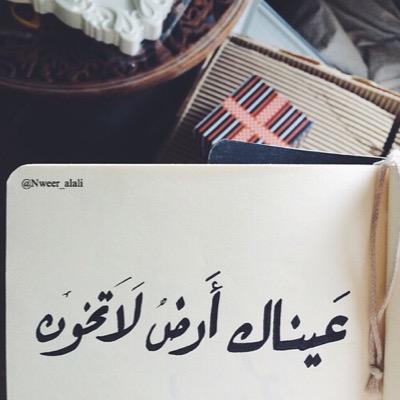 @Nweer_alali
عَيناك أَرضٌ لَاتخون